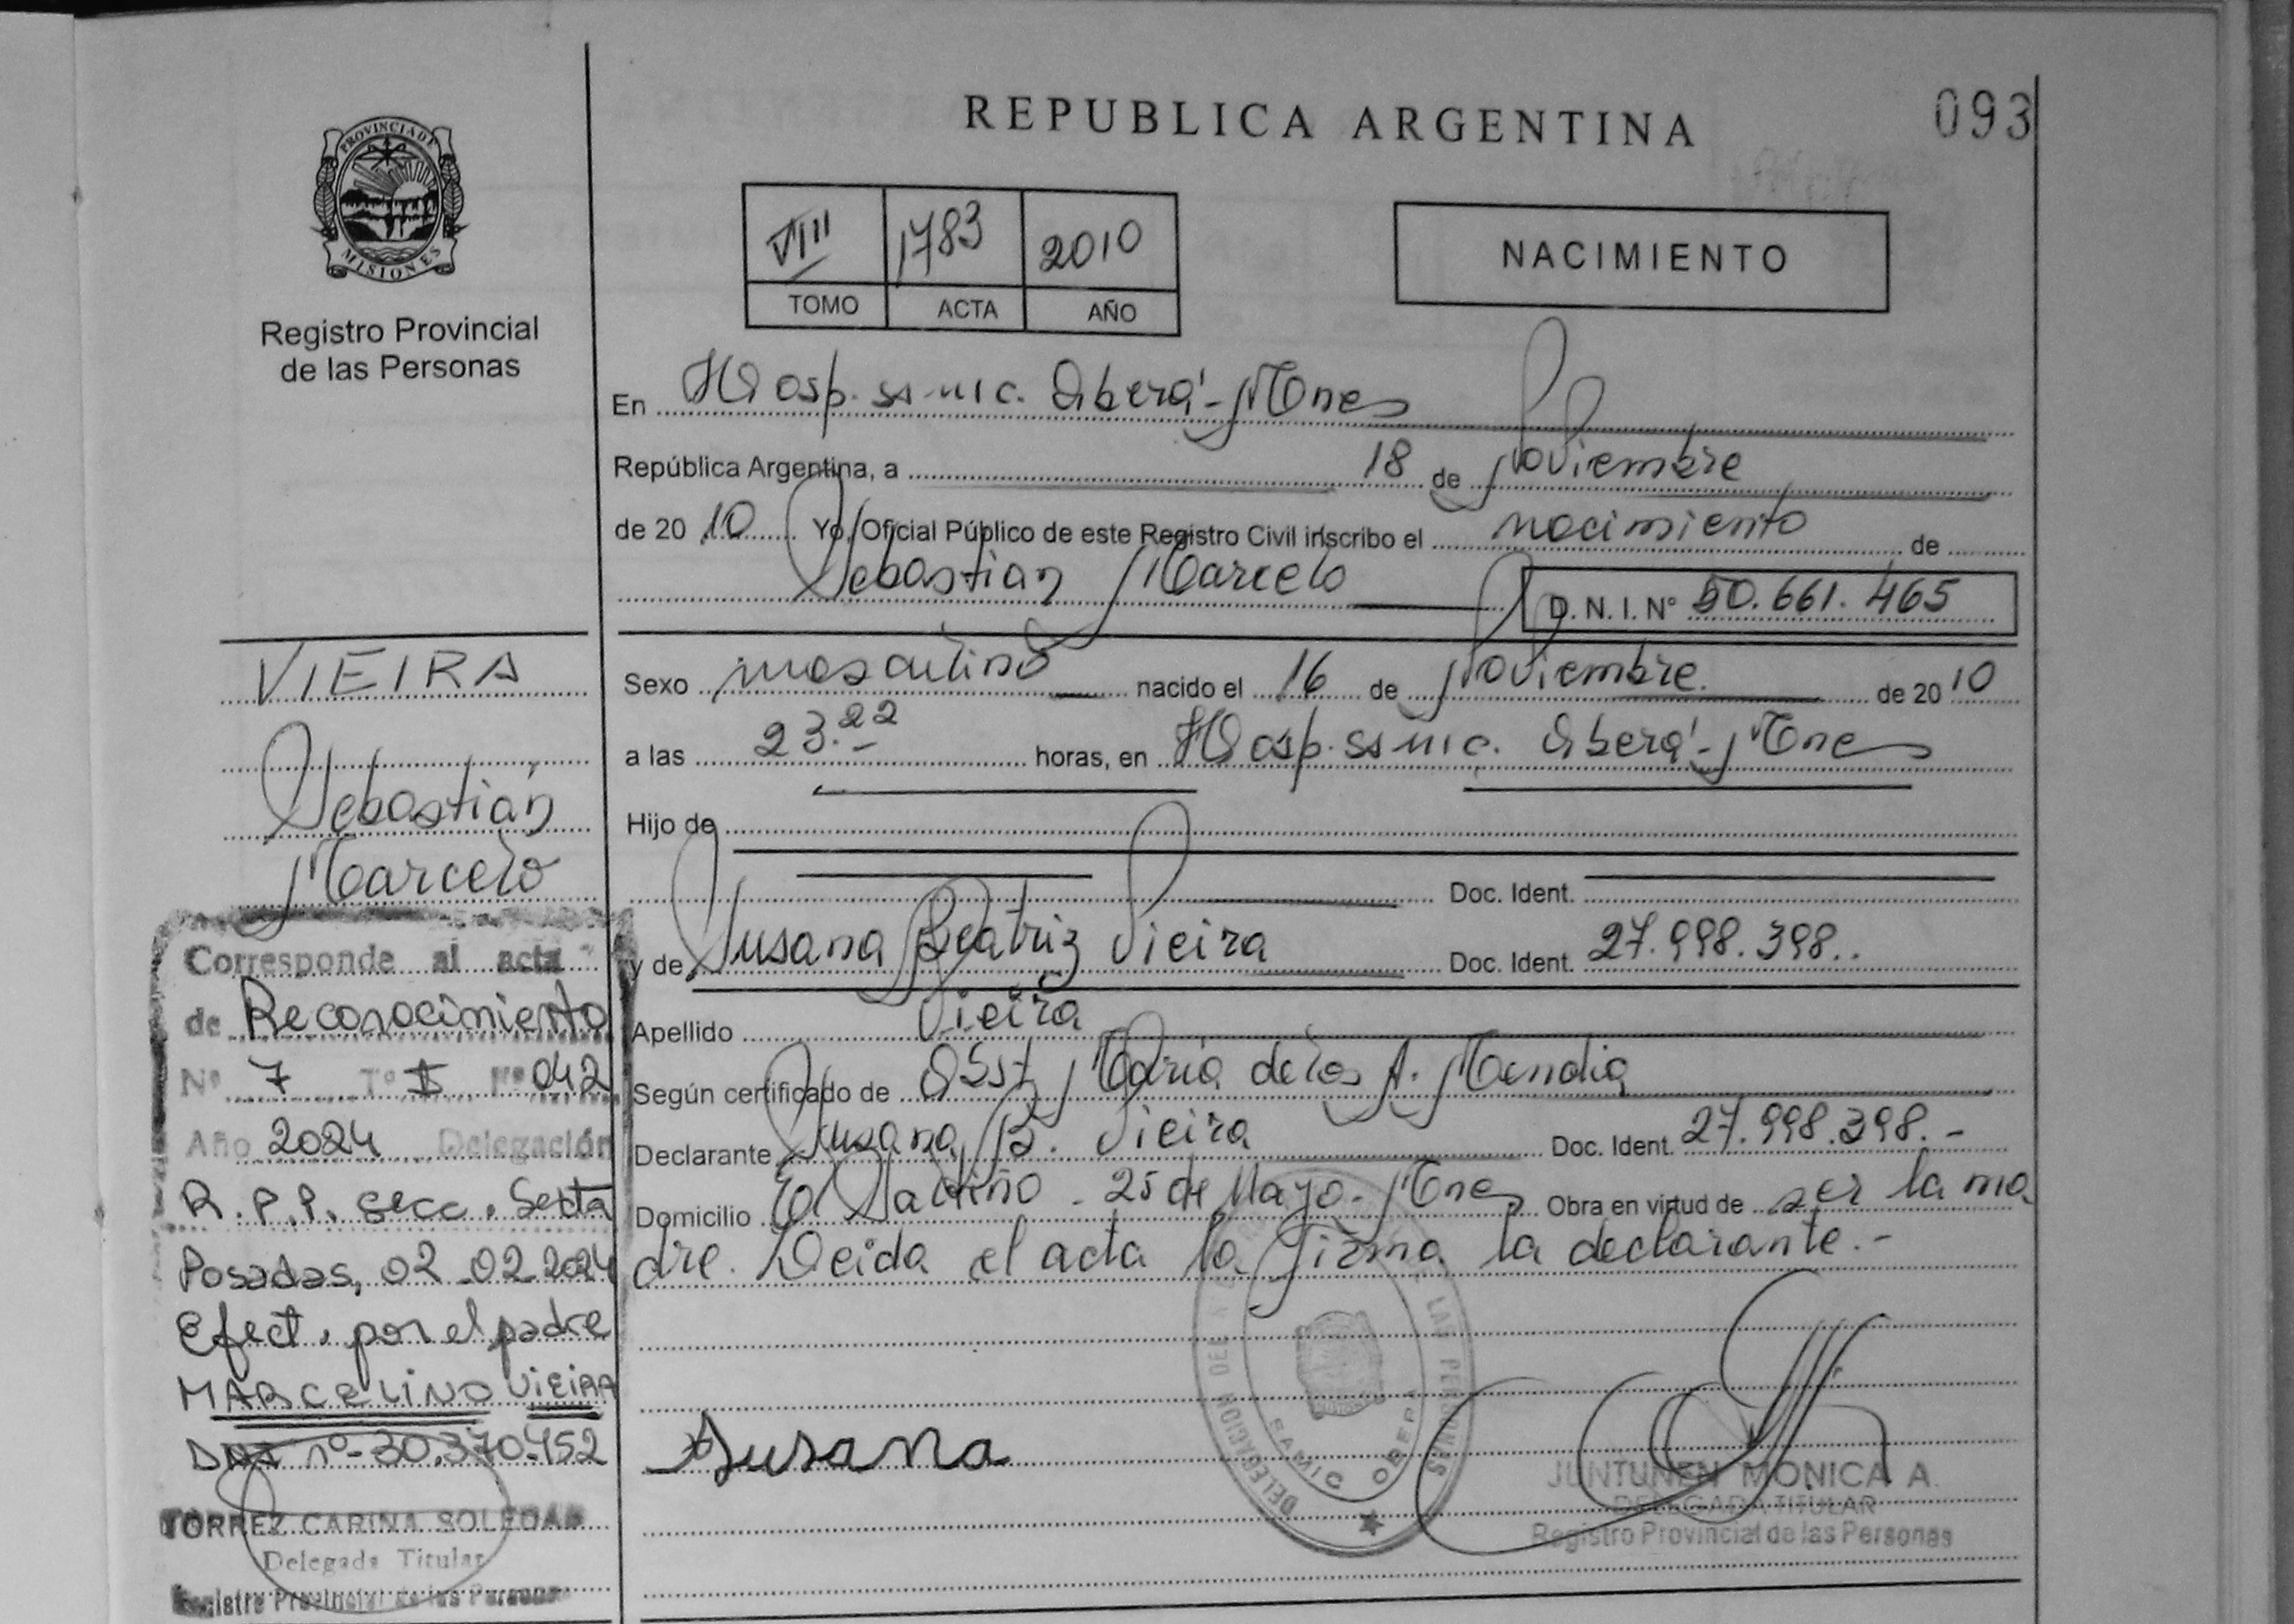 REPUBLICA ARGENTINA
093
PROVINCIA DE
MISIONES
Registro Provincial
de las Personas
VIII 1783 2010
TOMO ACTA AÑO
NACIMIENTO
En Hosp. ss mic. Oberá - Mnes
República Argentina, a 18 de Noviembre
de 20 10 Yo, Oficial Público de este Registro Civil inscribo el nacimiento de
Sebastian Marcelo D.N.I. Nº 50.661.465
Sexo masculino nacido el 16 de Noviembre de 20 10
a las 23.22 horas, en Hosp. ss mic. Oberá - Mnes
Hijo de
Doc. Ident.
y de Susana Beatriz Vieira Doc. Ident. 27.998.398..
Apellido Vieira
Según certificado de Obst María de los A. Mendia
Declarante Susana B. Vieira Doc. Ident. 27.998.398.-
Domicilio El Saltiño - 25 de Mayo - Mnes Obra en virtud de ser la ma
dre. Leida el acta la firma la declarante.-
Susana
DELEGACION DE LAS PERSONAS
SAMIC OBERA
JUNTUNEN MONICA A.
DELEGADA TITULAR
Registro Provincial de las Personas
VIEIRA
Sebastian
Marcelo
Corresponde al acta
de Reconocimiento
Nº 7 Tº I Fº 042
Año 2024 Delegación
R.P.P. secc. Sexta
Posadas, 02-02-2024
Efect. por el padre
MARCELINO VIEIRA
DNI nº-30.370.452
TORREZ CARINA SOLEDAD
Delegada Titular
Registro Provincial de las Personas